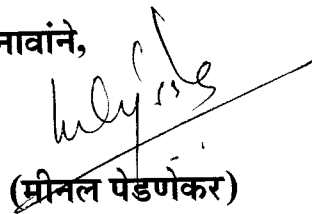 नावांने,
(मीनल पेडणेकर)